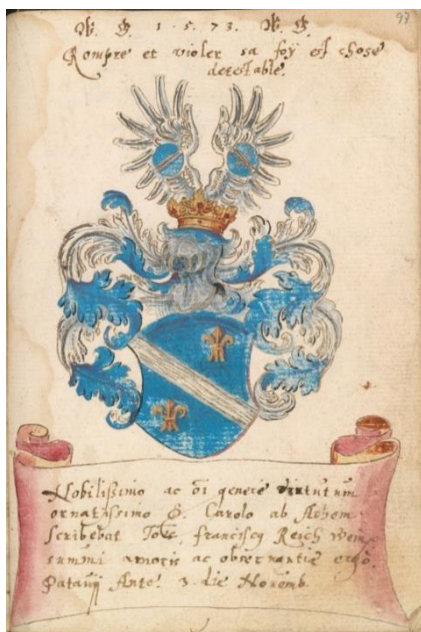 97
W. G. 1.5.73. W. G.
Rompre et violer sa foÿ est chose
detestable.
Nobilissimo ac oi genere virtutum
ornatissimo D. Carolo ab
scribebat francisc9 Reich
summi amoris ac observantiæ ergo
Patavij Ante. 3. die Novemb.